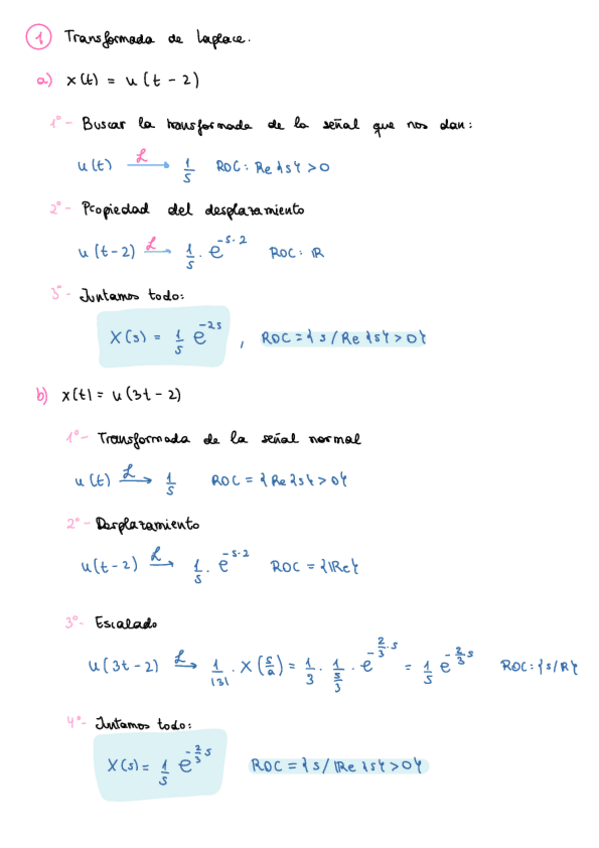 1 Transformada de Laplace.
a) x(t) = u(t - 2)
1º- Buscar la transformada de la señal que nos dan:
u(t) ℒ→ 1/s ROC: Re{s}>0
2º- Propiedad del desplazamiento
u(t-2) ℒ→ 1/s · e^(-s·2) ROC: ℝ
3º- Juntamos todo:
X(s) = 1/s e^(-2s) , ROC = {s/Re{s}>0}
b) x(t) = u(3t - 2)
1º- Transformada de la señal normal
u(t) ℒ→ 1/s ROC = {Re{s}>0}
2º- Desplazamiento
u(t-2) ℒ→ 1/s · e^(-s·2) ROC = {ℝe}
3º- Escalado
u(3t-2) ℒ→ 1/|3| · X(s/a) = 1/3 · 1/(s/3) · e^(-2/3·s) = 1/s e^(-2/3 s) ROC: {s/ℝ}
4º- Juntamos todo:
X(s) = 1/s e^(-2/3 s) ROC = {s/ℝe{s}>0}